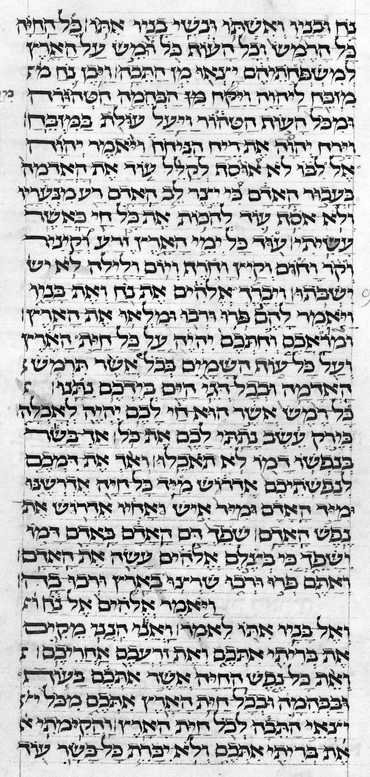 נח ובניו ואשתו ונשי בניו אתו כל החיה
כל הרמש וכל העוף כל רומש על הארץ
למשפחתיהם יצאו מן התבה ויבן נח מ
מזבח ליהוה ויקח מן הבהמה הטהורה
ומכל העוף הטהור ויעל עולת במזבח
וירח יהוה את ריח הניחח ויאמר יהוה
אל לבו לא אוסף לקלל עוד את האדמה
בעבור האדם כי יצר לב האדם רע מנעריו
ולא אסף עוד להכות את כל חי כאשר
עשיתי עוד כל ימי הארץ זרע וקציר
וקר וחום וקיץ וחרף ויום ולילה לא יש
ישבתו ויברך אלהים את נח ואת בניו
ויאמר להם פרו ורבו ומלאו את הארץ
ומוראכם וחתכם יהיה על כל חית הארץ
ועל כל עוף השמים בכל אשר תרמש
האדמה ובכל דגי הים בידכם נתנו
כל רמש אשר הוא חי לכם יהיה לאכלה
כירק עשב נתתי לכם את כל אך בשר
בנפשו דמו לא תאכלו ואך את דמכם
לנפשתיכם אדרוש מיד כל חיה אדרשנו
ומיד האדם ומיד איש אחיו אדרוש את
נפש האדם שפך דם האדם באדם דמו
ישפך כי בצלם אלהים עשה את האדם
ואתם פרו ורבו שרצו בארץ ורבו בה
ויאמר אלהים אל נח ו
ואל בניו אתו לאמר ואני הנני מקים
את בריתי אתכם ואת זרעכם אחריכם
ואת כל נפש החיה אשר אתכם בעוף
ובבהמה ובכל חית הארץ אתכם מכל יצ
יצאי התבה לכל חית הארץ והקימתי א
את בריתי אתכם ולא יכרת כל בשר עוד